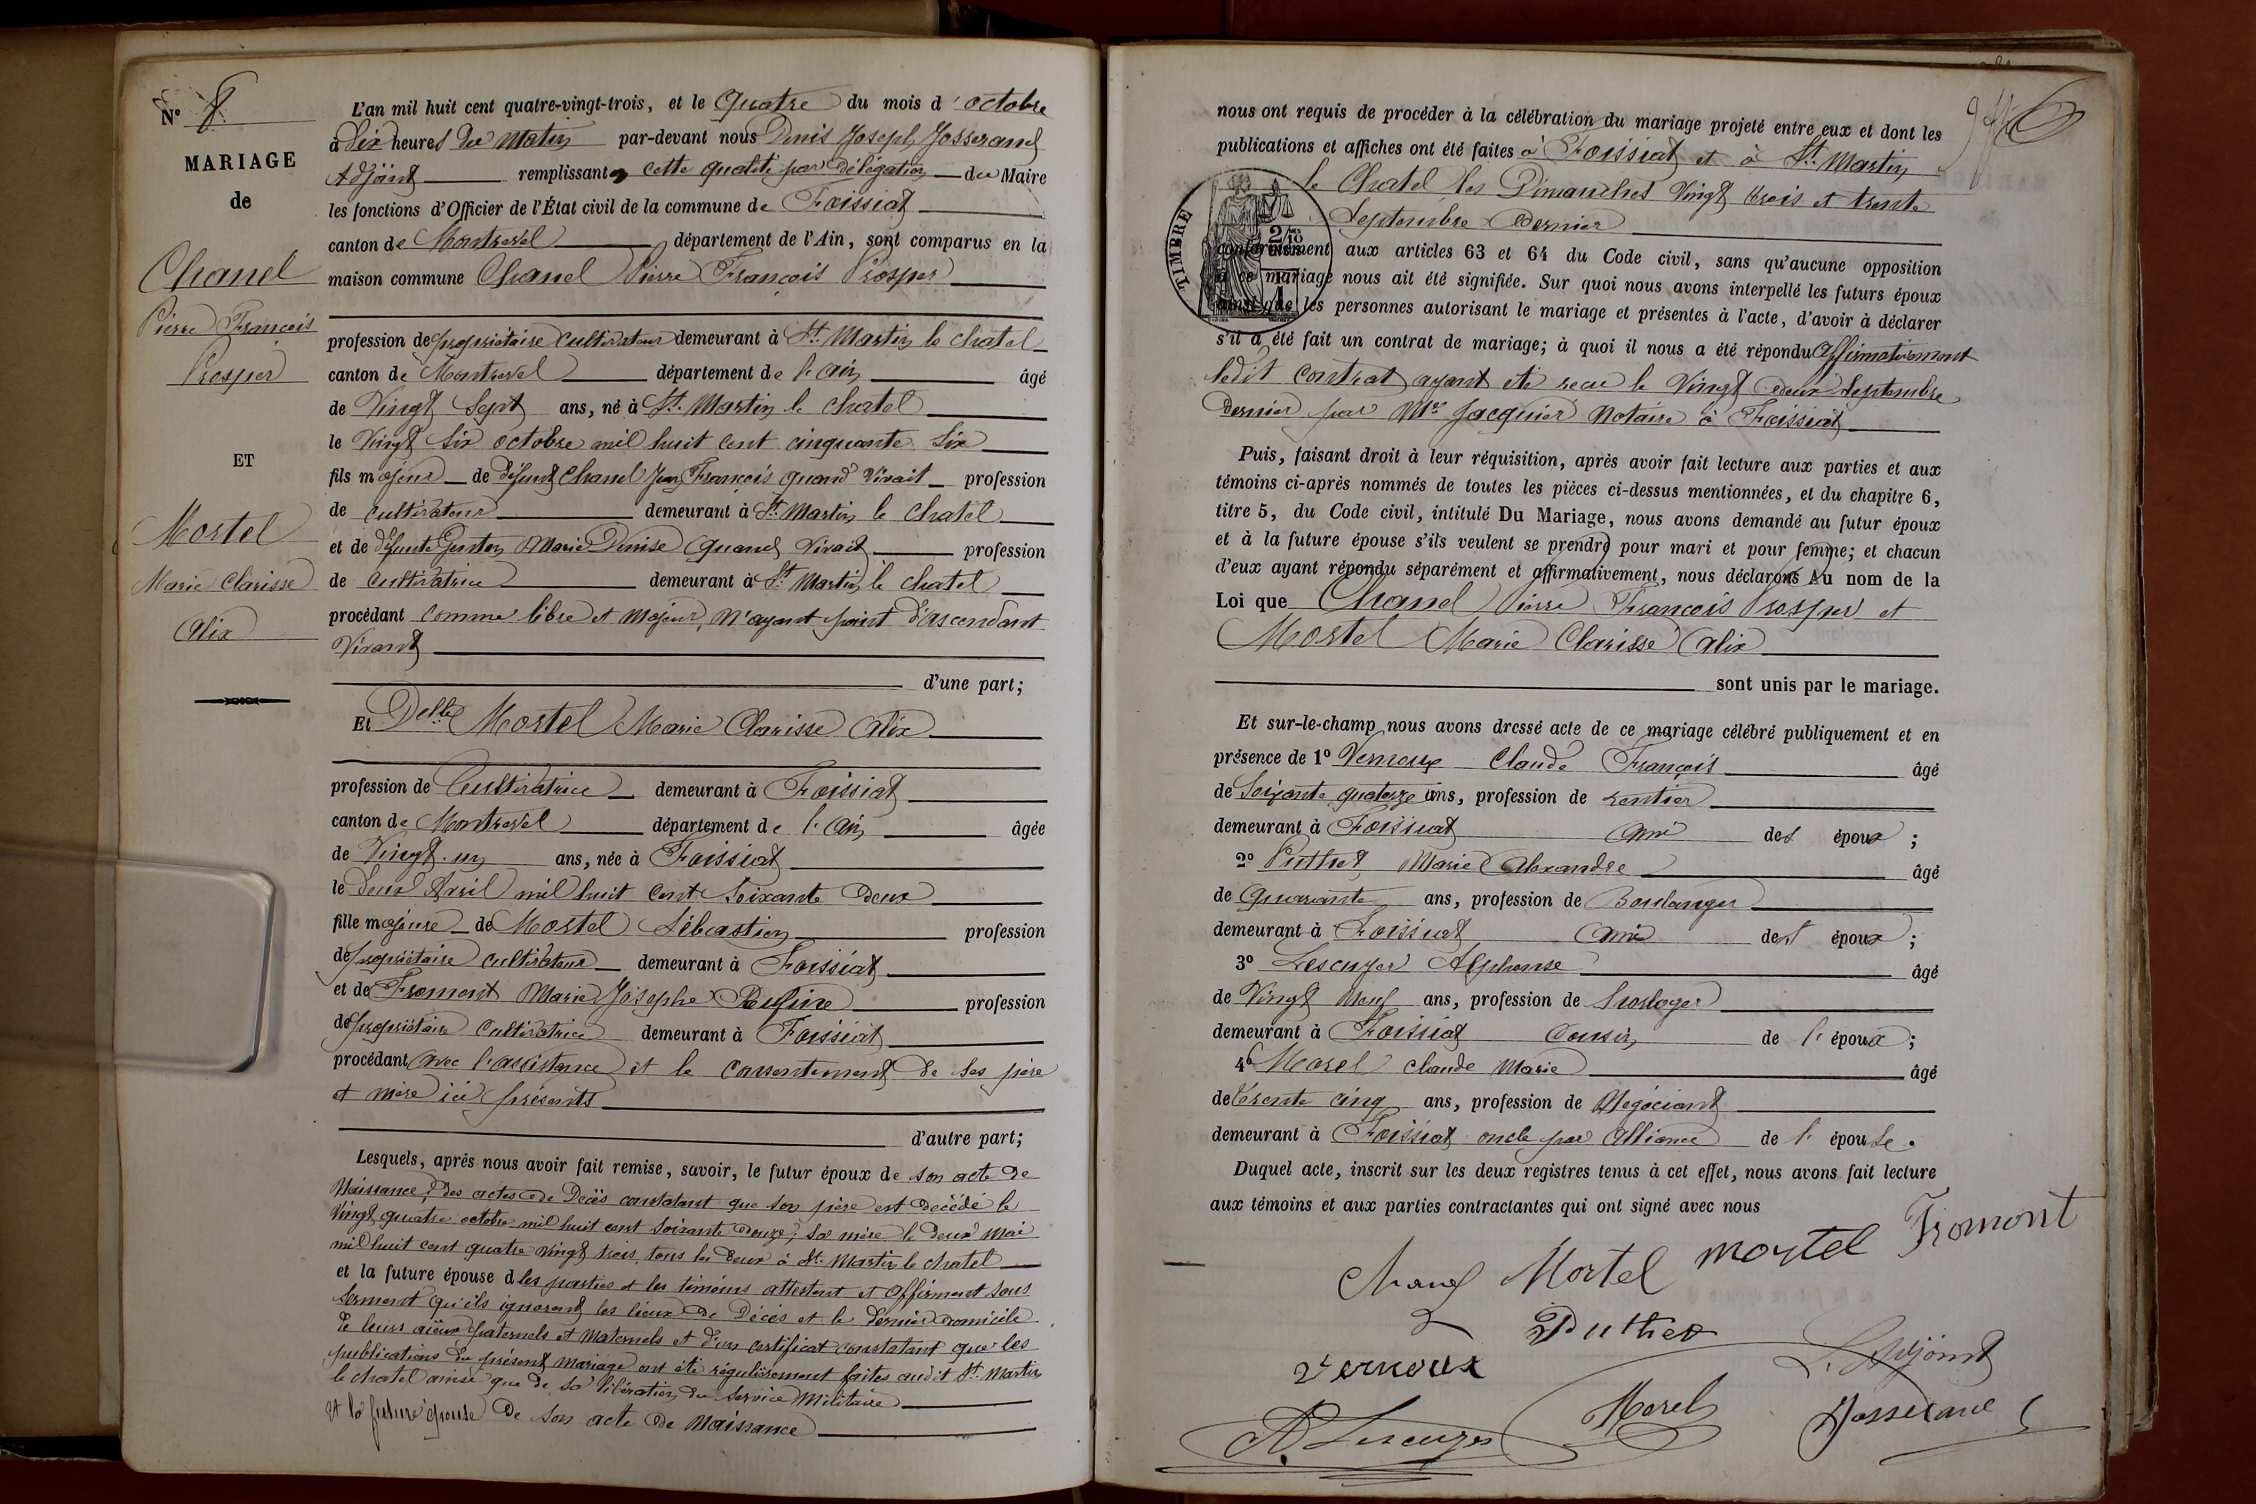 N° 8
MARIAGE
de
Chanel
Pierre François
Prosper
ET
Mortel
Marie Clarisse
Alix
L'an mil huit cent quatre-vingt-trois, et le Quatre du mois d'octobre
à dix heures du Matin par-devant nous Denis Joseph Josserand
Adjoint remplissant en cette qualité par délégation du Maire
les fonctions d'Officier de l'État civil de la commune de Foissiat
canton de Montrevel département de l'Ain, sont comparus en la
maison commune Chanel Pierre François Prosper
profession de propriétaire cultivateur demeurant à St. Martin le chatel
canton de Montrevel département de l'ain âgé
de Vingt Sept ans, né à St. Martin le chatel
le Vingt six octobre mil huit cent cinquante six
fils majeur de défunt Chanel Jean François quand Vivait profession
de cultivateur demeurant à St. Martin le chatel
et de défunte Marie Denise quand Vivait profession
de cultivatrice demeurant à St. Martin le chatel
procédant comme libre et Majeur, N'ayant point d'ascendant
Vivant
d'une part;
Et Delle Mortel Marie Clarisse Alix
profession de Cultivatrice demeurant à Foissiat
canton de Montrevel département de l'Ain âgée
de Vingt-un ans, née à Foissiat
le deux Avril mil huit cent soixante deux
fille majeure de Mortel Sébastien profession
de propriétaire cultivateur demeurant à Foissiat
et de Fromont Marie Josephe Rufine profession
de propriétaire cultivatrice demeurant à Foissiat
procédant avec l'assistance et le consentement de ses père
et mère ici présents
d'autre part;
Lesquels, après nous avoir fait remise, savoir, le futur époux de son acte de
Naissance, des actes de Decès constatant que son père est decédé le
Vingt quatre octobre mil huit cent soixante douze, sa mère le deux Mai
mil huit cent quatre vingt trois, tous les deux à St. Martin le chatel
et la future épouse d les parties et les témoins attestent et affirment sous
serment qu'ils ignorent les lieux de Décès et le dernier domicile
de leurs aïeux paternels et Maternels et d'un certificat constatant que les
publications du présent mariage ont été régulièrement faites audit St. Martin
le chatel ainsi que de sa libération du service Militaire
et la future épouse de son acte de Naissance
nous ont requis de procéder à la célébration du mariage projeté entre eux et dont les
publications et affiches ont été faites à Foissiat et à St. Martin
le Chatel les Dimanches Vingt trois et trente
Septembre Dernier
TIMBRE
conformément aux articles 63 et 64 du Code civil, sans qu'aucune opposition
à ce mariage nous ait été signifiée. Sur quoi nous avons interpellé les futurs époux
ainsi que les personnes autorisant le mariage et présentes à l'acte, d'avoir à déclarer
s'il a été fait un contrat de mariage; à quoi il nous a été répondu affirmativement
ledit contrat ayant été reçu le Vingt deux Septembre
Dernier par Me Jacquier Notaire à Foissiat
Puis, faisant droit à leur réquisition, après avoir fait lecture aux parties et aux
témoins ci-après nommés de toutes les pièces ci-dessus mentionnées, et du chapitre 6,
titre 5, du Code civil, intitulé Du Mariage, nous avons demandé au futur époux
et à la future épouse s'ils veulent se prendre pour mari et pour femme; et chacun
d'eux ayant répondu séparément et affirmativement, nous déclarons au nom de la
Loi que Chanel Pierre François Prosper et
Mortel Marie Clarisse Alix
sont unis par le mariage.
Et sur-le-champ nous avons dressé acte de ce mariage célébré publiquement et en
présence de 1° Vernoux Claude François âgé
de Soixante quatorze ans, profession de rentier
demeurant à Foissiat ami des époux;
2° Puthet Marie Alexandre âgé
de Quarante ans, profession de Boulanger
demeurant à Foissiat ami des époux;
3° Lescuyer Alphonse âgé
de Vingt Neuf ans, profession de horloger
demeurant à Foissiat Cousin de l'époux;
4° Morel Claude Marie âgé
de trente cinq ans, profession de Négociant
demeurant à Foissiat oncle par alliance de l'épouse.
Duquel acte, inscrit sur les deux registres tenus à cet effet, nous avons fait lecture
aux témoins et aux parties contractantes qui ont signé avec nous
Chanel Mortel mortel Fromont
Puthet
Vernoux
L'Adjoint
A. Lescuyer Morel Josserand